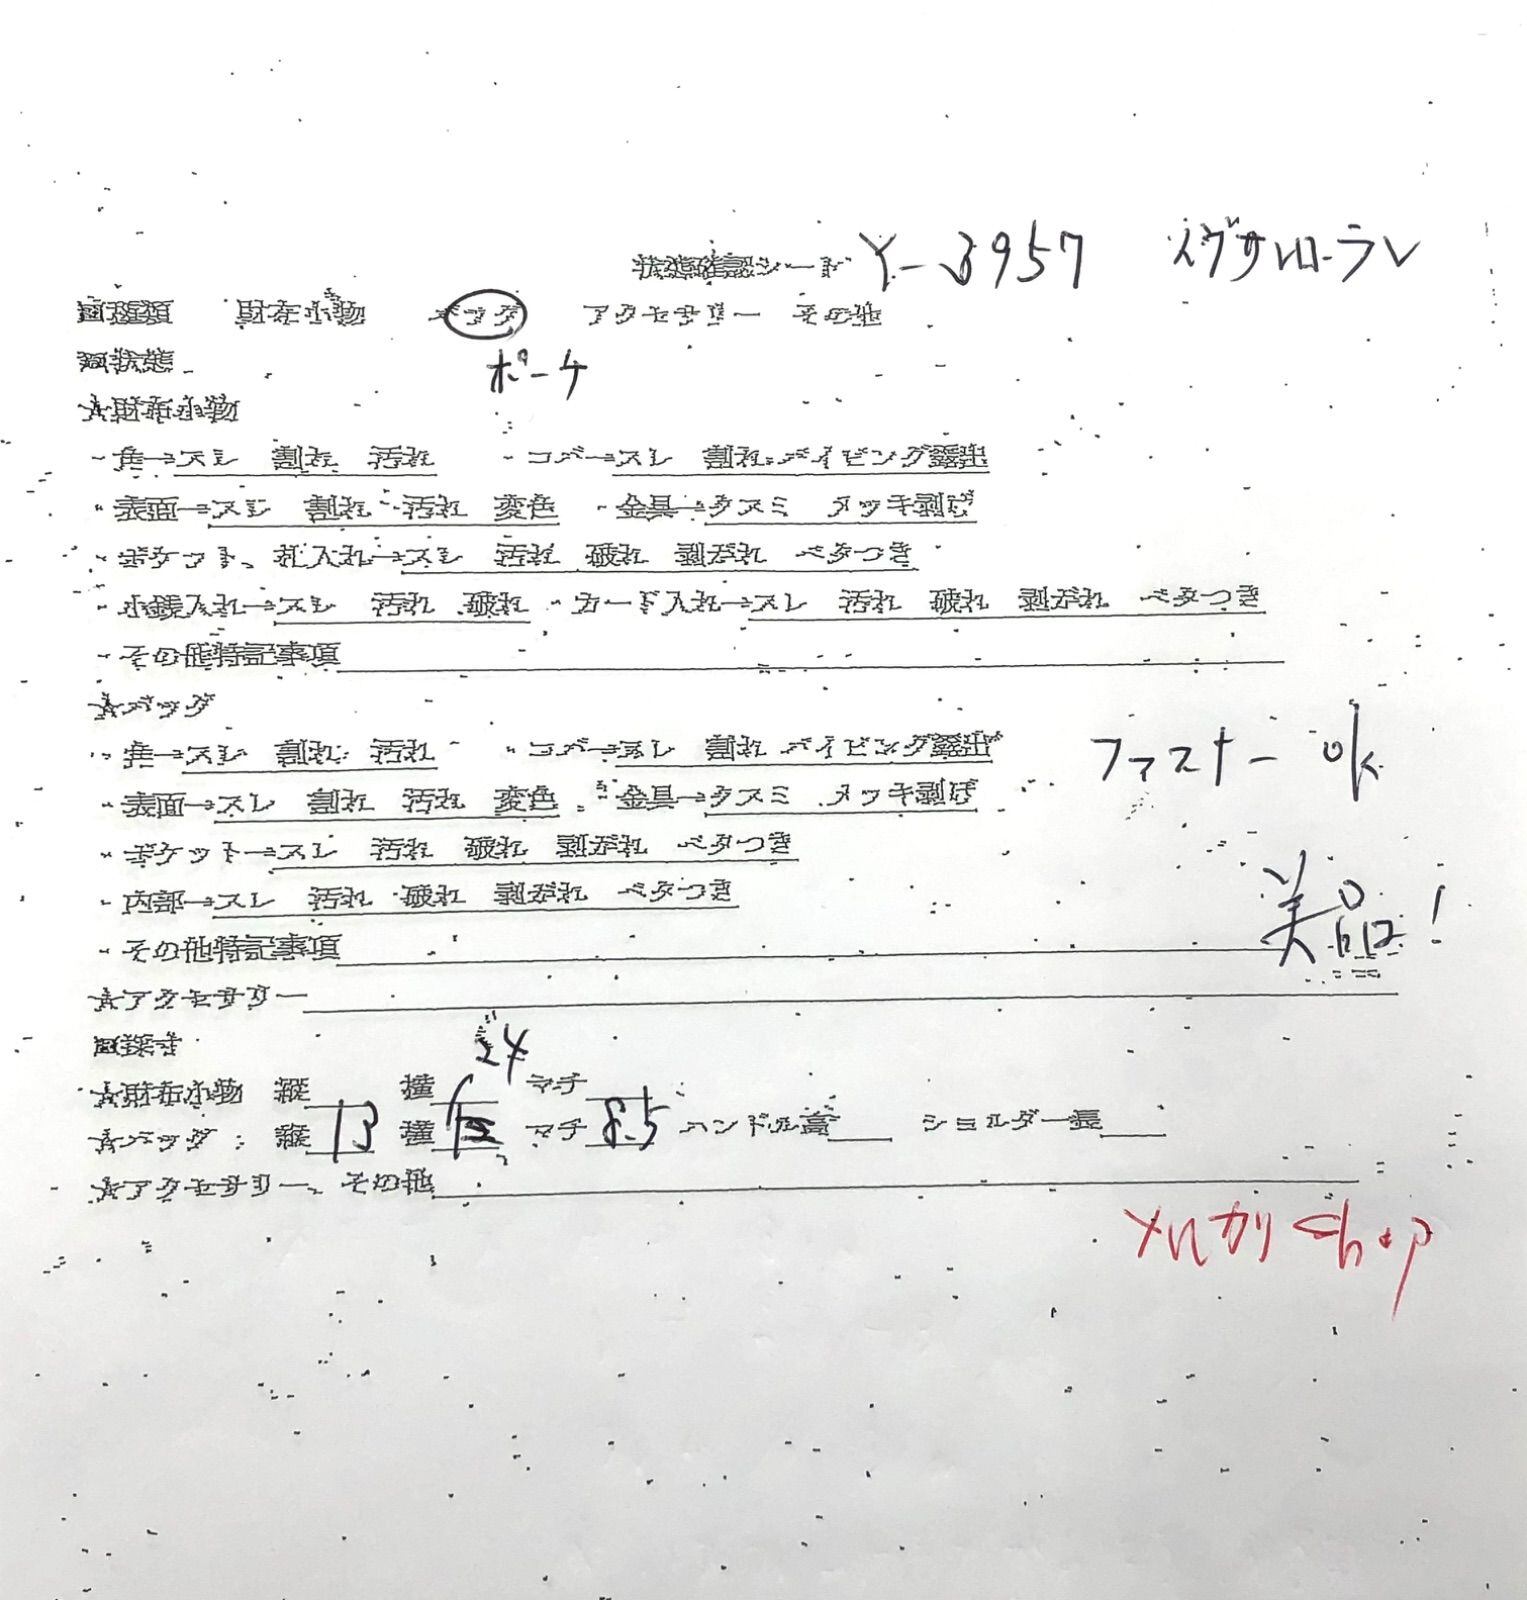 状態確認シート Y-3957 イヴサンローラン
■種類 財布小物 バッグ アクセサリー その他
■状態 ポーチ
☆財布小物
・角→スレ 割れ 汚れ ・コバ→スレ 割れ パイピング露出
・表面→スレ 割れ 汚れ 変色 ・金具→クスミ メッキ剥げ
・ポケット、札入れ→スレ 汚れ 破れ 剥がれ ベタつき
・小銭入れ→スレ 汚れ 破れ ・カード入れ→スレ 汚れ 破れ 剥がれ ベタつき
・その他特記事項
☆バッグ
・角→スレ 割れ 汚れ ・コバ→スレ 割れ パイピング露出
・表面→スレ 割れ 汚れ 変色 ・金具→クスミ メッキ剥げ
ファスナー ok
・ポケット→スレ 汚れ 破れ 剥がれ ベタつき
・内部→スレ 汚れ 破れ 剥がれ ベタつき
美品!
・その他特記事項
☆アクセサリー
■採寸
24
☆財布小物 縦 横 マチ
☆バッグ:縦13 横 マチ8.5 ハンドル高 ショルダー長
☆アクセサリー、その他
メルカリshop